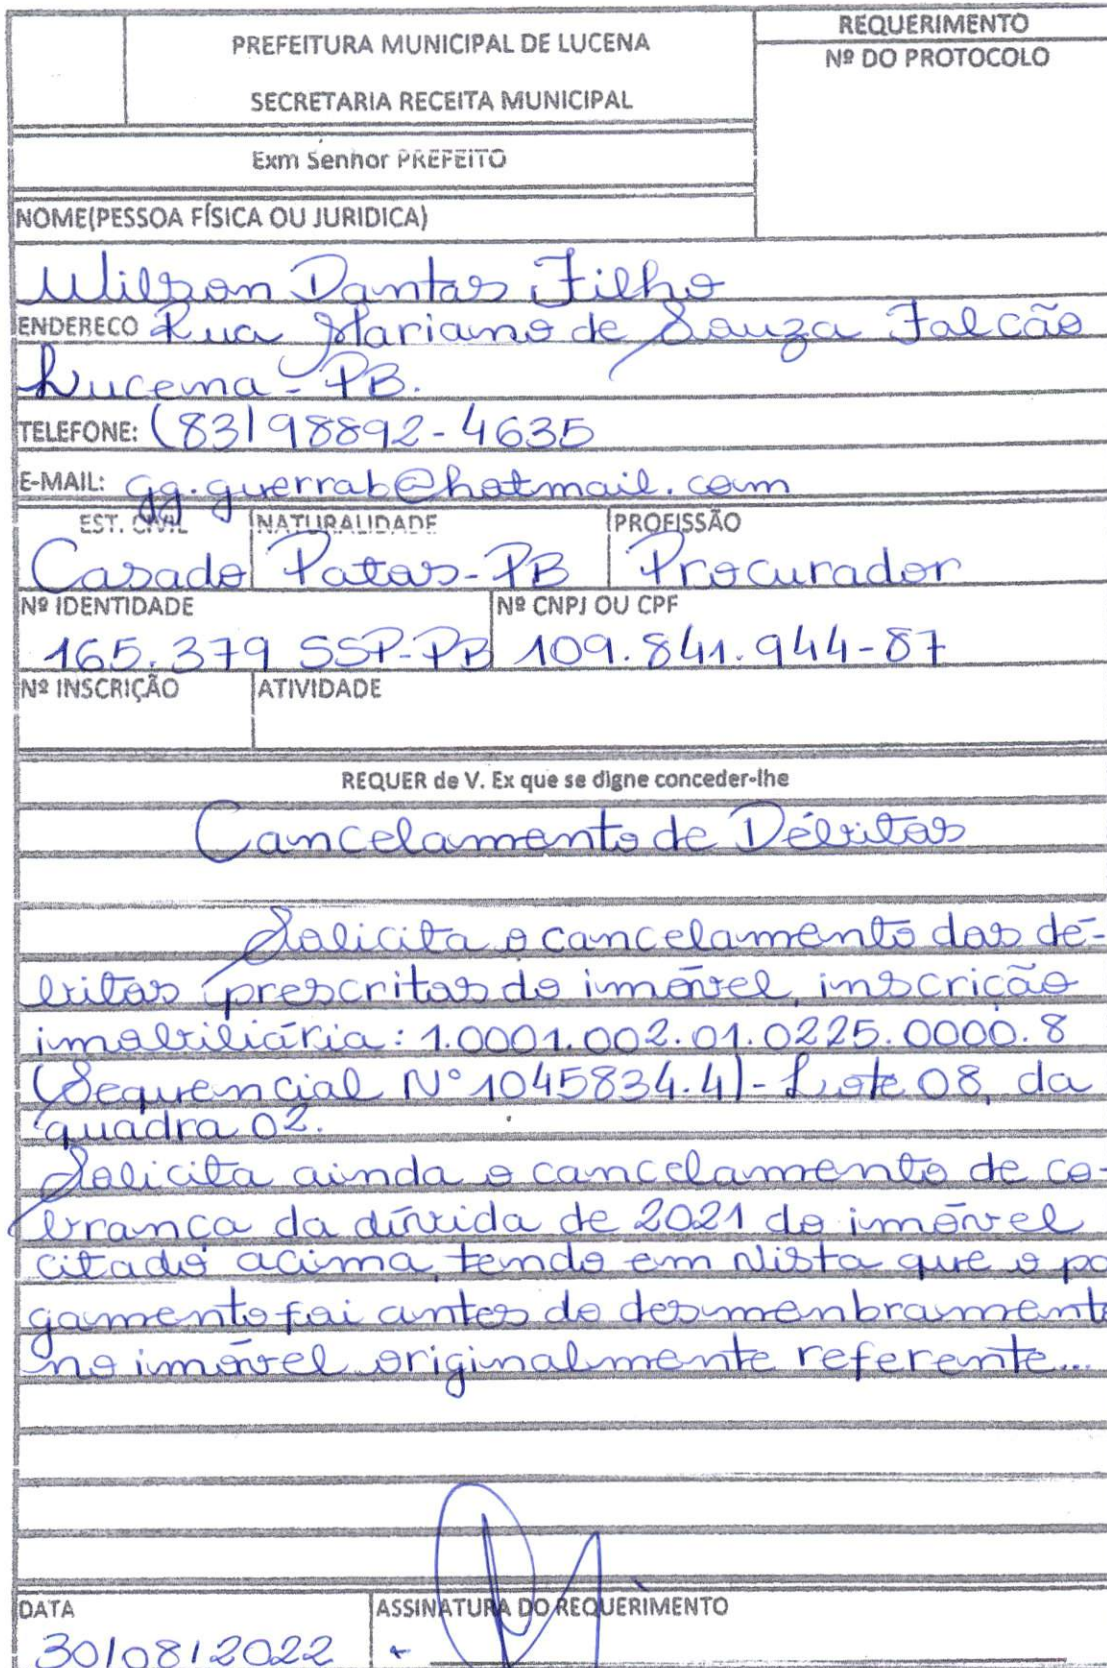 PREFEITURA MUNICIPAL DE LUCENA
SECRETARIA RECEITA MUNICIPAL
REQUERIMENTO
Nº DO PROTOCOLO
Exm Senhor PREFEITO
NOME(PESSOA FÍSICA OU JURIDICA)
Wilson Dantas Filho
ENDERECO Rua Mariano de Souza Falcão
Lucena - PB.
TELEFONE: (83) 98892-4635
E-MAIL: gg.guerrab@hotmail.com
EST. CIVIL NATURALIDADE PROFISSÃO
Casado Patos-PB Procurador
Nº IDENTIDADE Nº CNPJ OU CPF
165.379 SSP-PB 109.841.944-87
Nº INSCRIÇÃO ATIVIDADE
REQUER de V. Ex que se digne conceder-lhe
Cancelamento de Débitos
Solicita o cancelamento dos dé-
bitos prescritos do imóvel, inscrição
imobiliária: 1.0001.002.01.0225.0000.8
(Sequencial Nº 1045834.4) - Lote 08, da
quadra 02.
Solicita ainda o cancelamento de co-
brança da dívida de 2021 do imóvel
citado acima, tendo em vista que o pa
gamento foi antes do desmenbramento
no imóvel originalmente referente...
DATA ASSINATURA DO REQUERIMENTO
30/08/2022